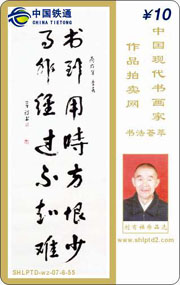 中国铁通
CHINA TIETONG
¥10
中国现代书画家
作品拍卖网
书法荟萃
书到用时方恨少
事非经过不知难
www.shlptd2.com
SHLPTD-wz-07-8-55